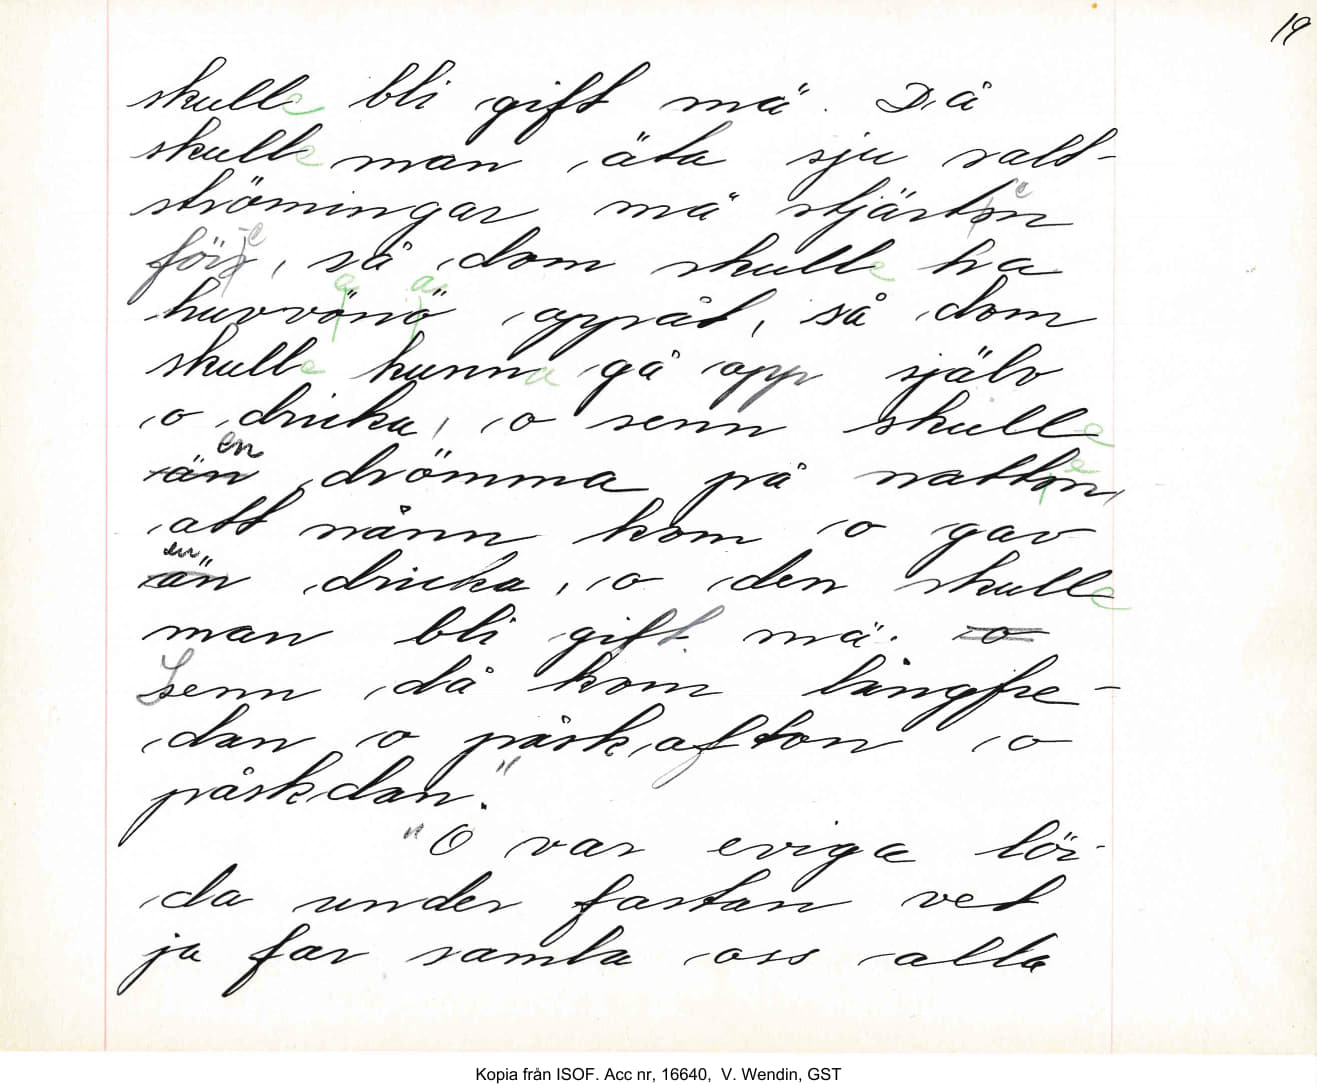 19
skulle bli gift mä. Då
skulle man äta sju salt-
strömingar mä stjärten
före, så dom skulle ha
huvvana oppåt, så dom
skulle kunna gå opp själv
o dricka, o senn skulle
en drömma på natten,
att nånn kom o gav
en dricka, o den skulle
man bli gift mä. o
Senn då kom långfre-
dan o påskafton o
påskdan."
"O var eviga lör-
da under fastan vet
ja far samla oss alla
Kopia från ISOF. Acc nr, 16640, V. Wendin, GST